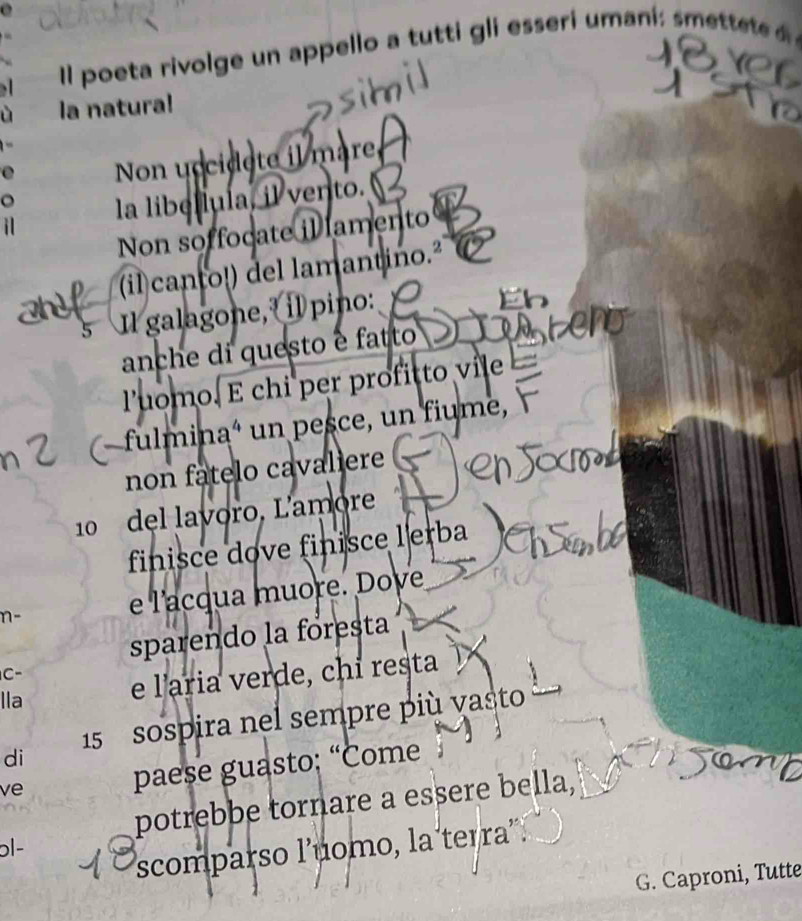 Il poeta rivolge un appello a tutti gli esseri umani: smettete di
la natura!
18 ver
1 str
simil
Non uccidete il mare, A
la libellula, il vento. B
Non soffocate il lamento B
(il canto!) del lamantino.² C
5 Il galagone,³ il pino: C
anche di questo è fatto D
l'uomo. E chi per profitto vile E
fulmina⁴ un pesce, un fiume, F
non fatelo cavaliere G
10 del lavoro. L'amore H
finisce dove finisce l'erba
e l'acqua muore. Dove
sparendo la foresta
e l'aria verde, chi resta
15 sospira nel sempre più vasto L
paese guasto: “Come M
potrebbe tornare a essere bella, N
18 scomparso l'uomo, la terra”. O
G. Caproni, Tutte
el
ù
e
o
il
n-
c-
lla
di
ve
ol-